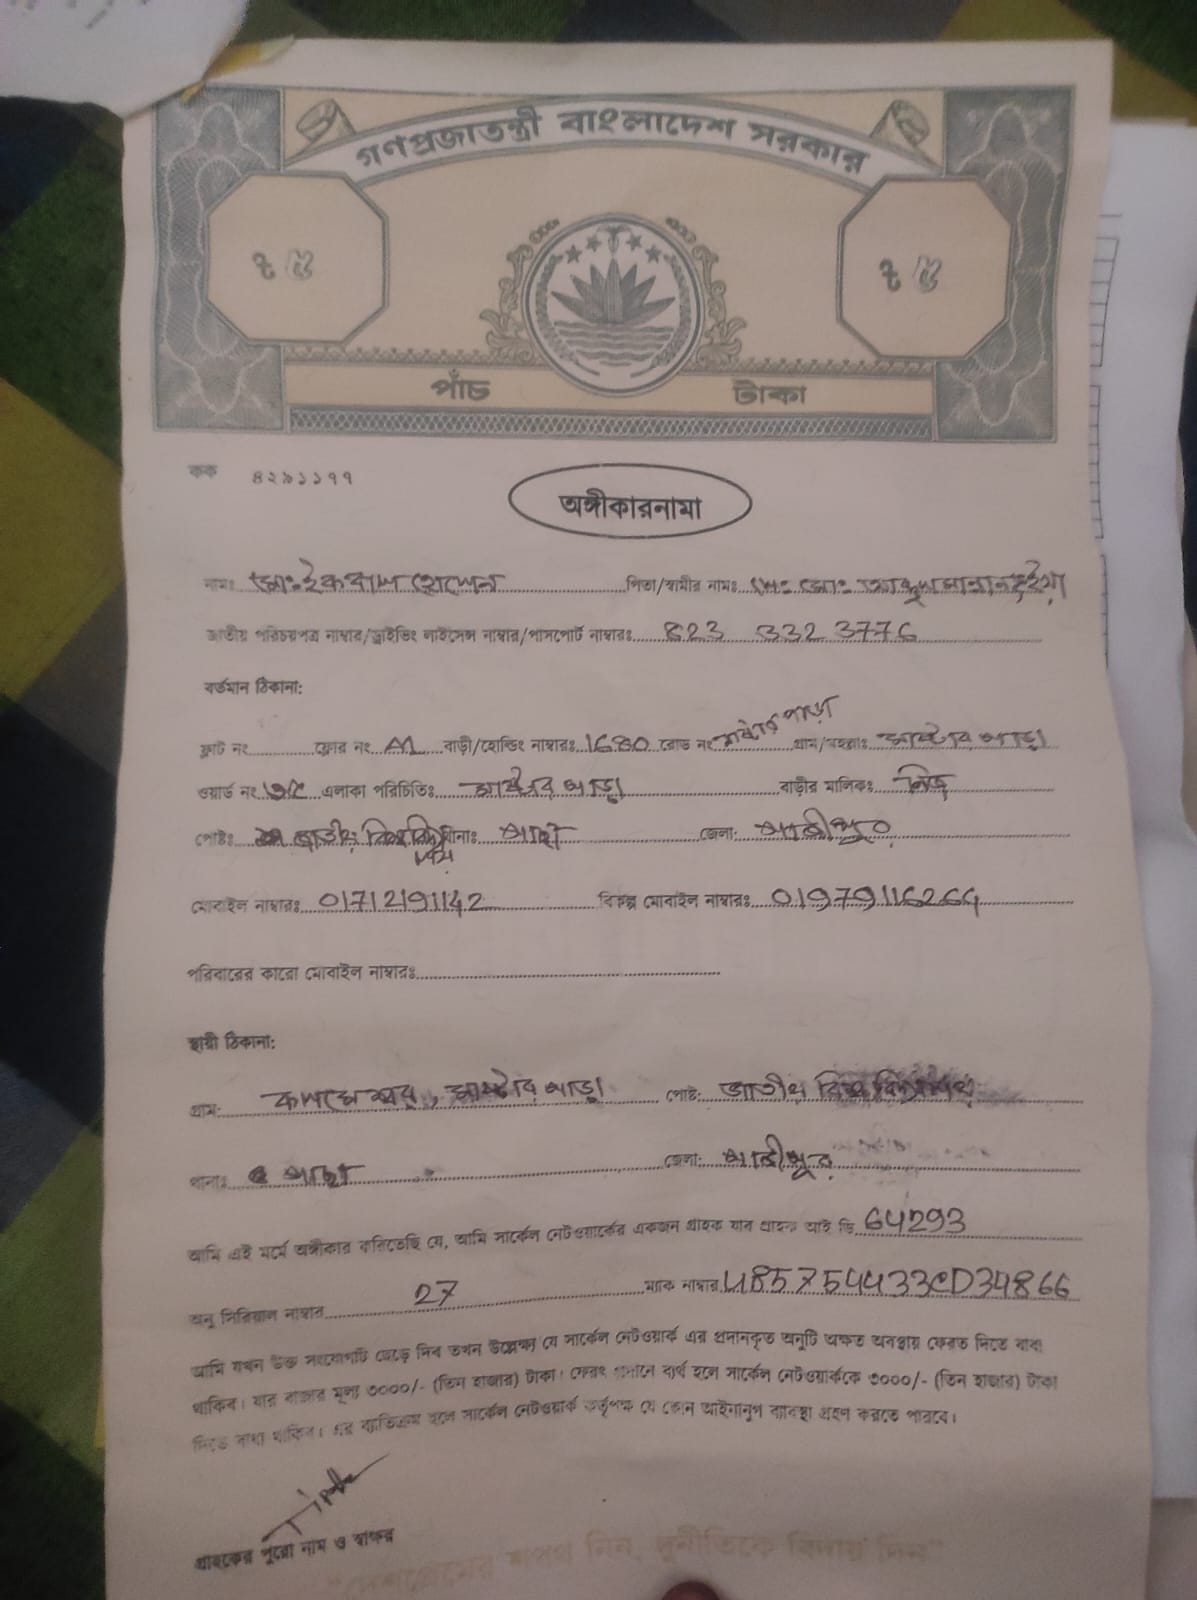 গণপ্রজাতন্ত্রী বাংলাদেশ সরকার
৳ ৫ ৳ ৫
পাঁচ টাকা
কক ৪২৯১১৭৭
অঙ্গীকারনামা
নামঃ মোঃ ইকবাল হোসেন পিতা/স্বামীর নামঃ মোঃ আব্দুল মান্নান ভূইয়া
জাতীয় পরিচয়পত্র নাম্বার/ড্রাইভিং লাইসেন্স নাম্বার/পাসপোর্ট নাম্বারঃ 823 332 3776
বর্তমান ঠিকানা:
ফ্লাট নং ফ্লোর নং A1 বাড়ী/হোল্ডিং নাম্বারঃ 1680 রোড নং মাষ্টার পাড়া গ্রাম/মহল্লাঃ মাষ্টার পাড়া
ওয়ার্ড নং ৩৫ এলাকা পরিচিতিঃ মাষ্টার পাড়া বাড়ীর মালিকঃ নিজ
পোষ্টঃ জাতীয় বিশ্ববিদ্যালয় থানাঃ গাছা জেলা: গাজীপুর
মোবাইল নাম্বারঃ 01712191142 বিকল্প মোবাইল নাম্বারঃ 01979116264
পরিবারের কারো মোবাইল নাম্বারঃ
স্থায়ী ঠিকানা:
গ্রাম: কলমেশ্বর, মাষ্টার পাড়া পোষ্ট: জাতীয় বিশ্ববিদ্যালয়
থানাঃ গাছা জেলা: গাজীপুর
আমি এই মর্মে অঙ্গীকার করিতেছি যে, আমি সার্কেল নেটওয়ার্কের একজন গ্রাহক যার গ্রাহক আই ডি 64293
অনু সিরিয়াল নাম্বার 27 ম্যাক নাম্বার 485754433CD34866
আমি যখন উক্ত সংযোগটি ছেড়ে দিব তখন উল্লেক্ষ্য যে সার্কেল নেটওয়ার্ক এর প্রদানকৃত অনুটি অক্ষত অবস্থায় ফেরত দিতে বাধ্য
থাকিব। যার বাজার মূল্য ৩০০০/- (তিন হাজার) টাকা। ফেরৎ প্রদানে ব্যর্থ হলে সার্কেল নেটওয়ার্ককে ৩০০০/- (তিন হাজার) টাকা
দিতে বাধ্য থাকিব। এর ব্যতিক্রম হলে সার্কেল নেটওয়ার্ক কর্তৃপক্ষ যে কোন আইনানুগ ব্যবস্থা গ্রহণ করতে পারবে।
গ্রাহকের পুরো নাম ও স্বাক্ষর
"দেশপ্রেমের শপথ নিন, দুর্নীতিকে বিদায় দিন"